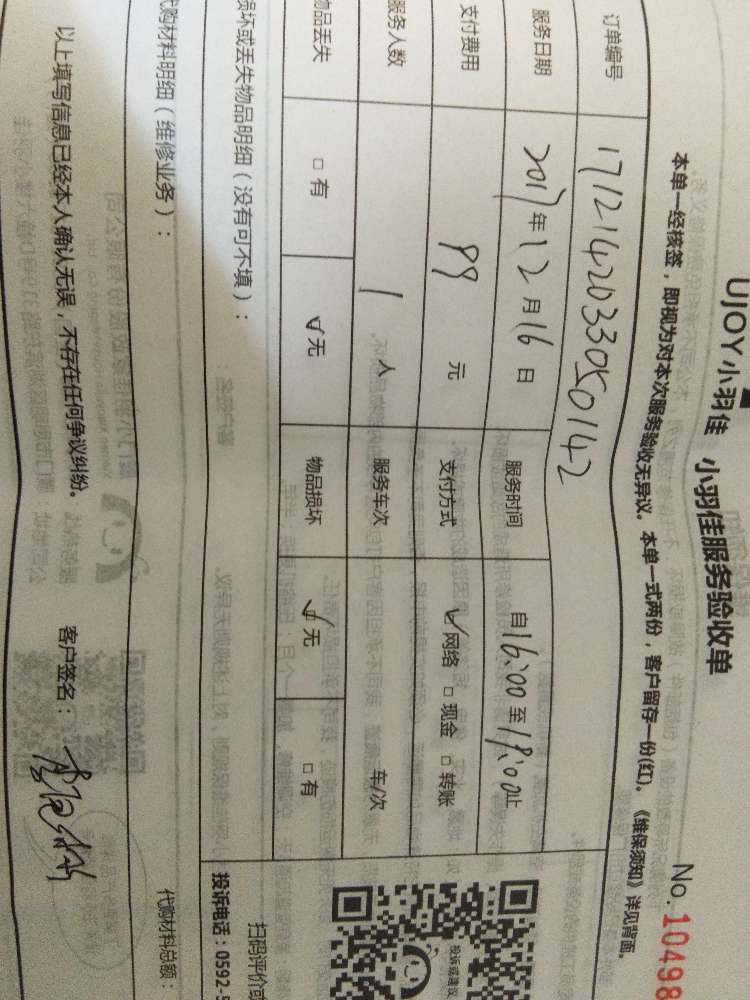 UJOY小羽佳 小羽佳服务验收单
No. 10498
本单一经核签，即视为对本次服务验收无异议。本单一式两份，客户留存一份(红)。《维保须知》详见背面。
订单编号 1712142033050142
服务日期 2017年12月16日 服务时间 自16:00至18:00止
支付费用 99 元 支付方式 ☑网络 □现金 □转账
服务人数 1 人 服务车次 车/次
物品丢失 □有 ☑无 物品损坏 ☑无 □有
损坏或丢失物品明细（没有可不填）：
投诉或建议
扫码评价或
投诉电话：0592-5
代购材料明细（维修业务）： 代购材料总额：
以上填写信息已经本人确认无误，不存在任何争议纠纷。 客户签名：